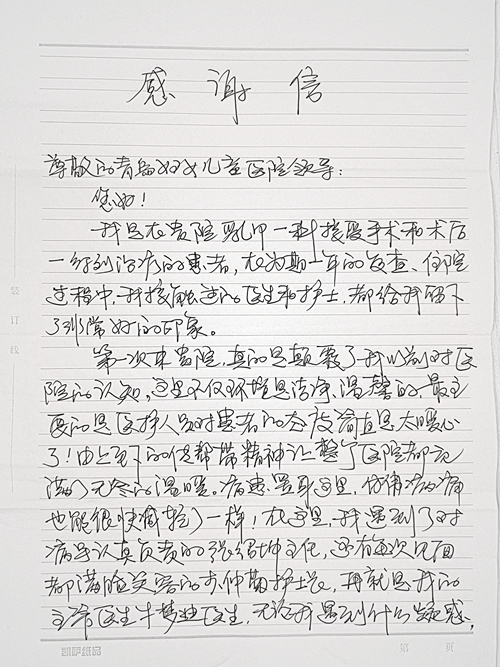 感谢信
尊敬的青岛妇女儿童医院领导：
您好！
我是在贵院乳甲一科接受手术和术后
一系列治疗的患者，在为期一年的复查、住院
过程中，我接触过的医生和护士，都给我留下
了非常好的印象。
第一次来贵院，真的是颠覆了我以前对医
院的认知，这里不仅环境是洁净、温馨的，最主
要的是医护人员对患者的态度简直是太暖心
了！由上至下的传帮带精神让整个医院都充
满了无尽的温暖。病患置身这里，仿佛病痛
也能很快减轻了一样！在这里，我遇到了对
病患认真负责的张绍坤主任，还有每次见面
都满脸笑容的护士长，再就是我的
主治医生牛梦 医生，无论我遇到什么疑惑，
装订线
凯萨纸品
第 页